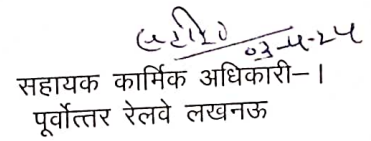 03-4-24
सहायक कार्मिक अधिकारी–।
पूर्वोत्तर रेलवे लखनऊ